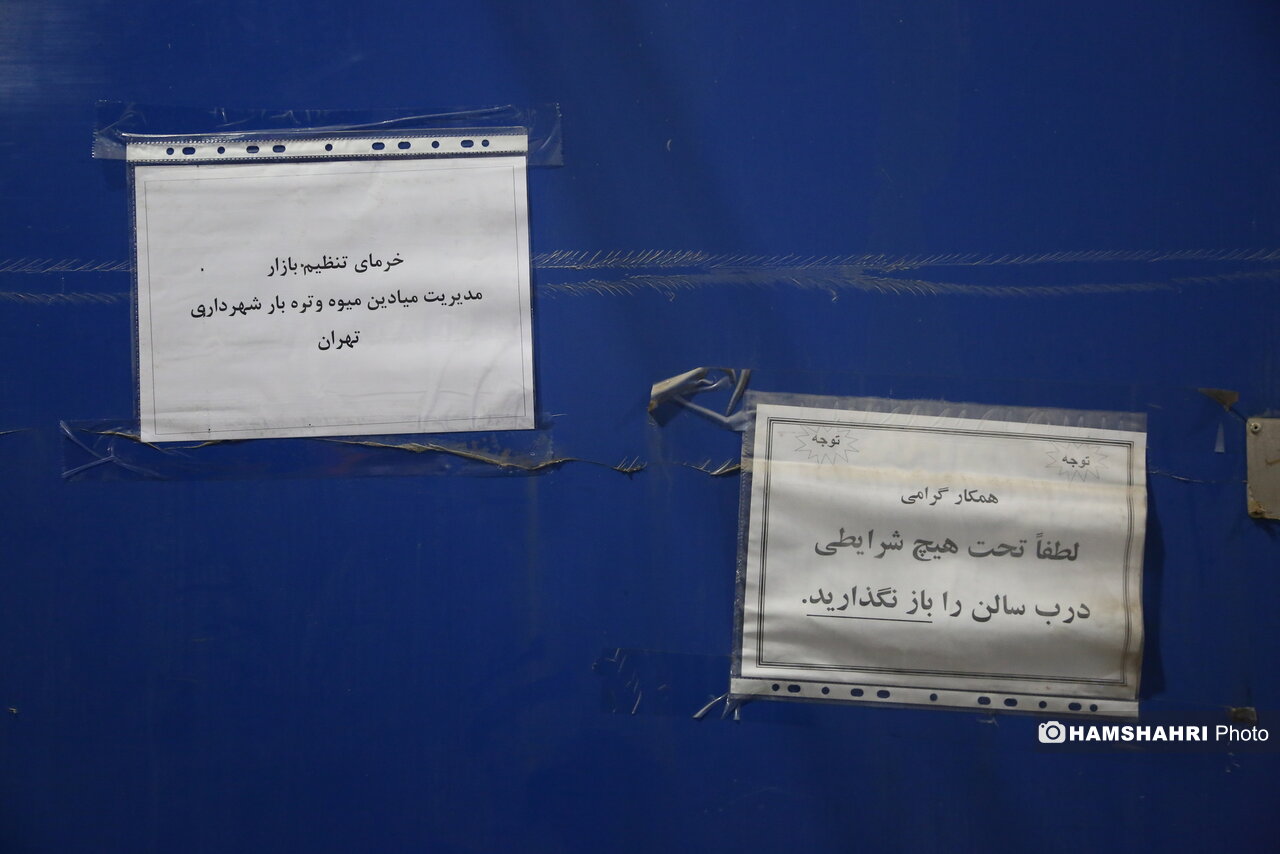 خرمای تنظیم بازار
مدیریت میادین میوه وتره بار شهرداری
تهران
توجه
توجه
همکار گرامی
لطفاً تحت هیچ شرایطی
درب سالن را باز نگذارید.
HAMSHAHRI Photo